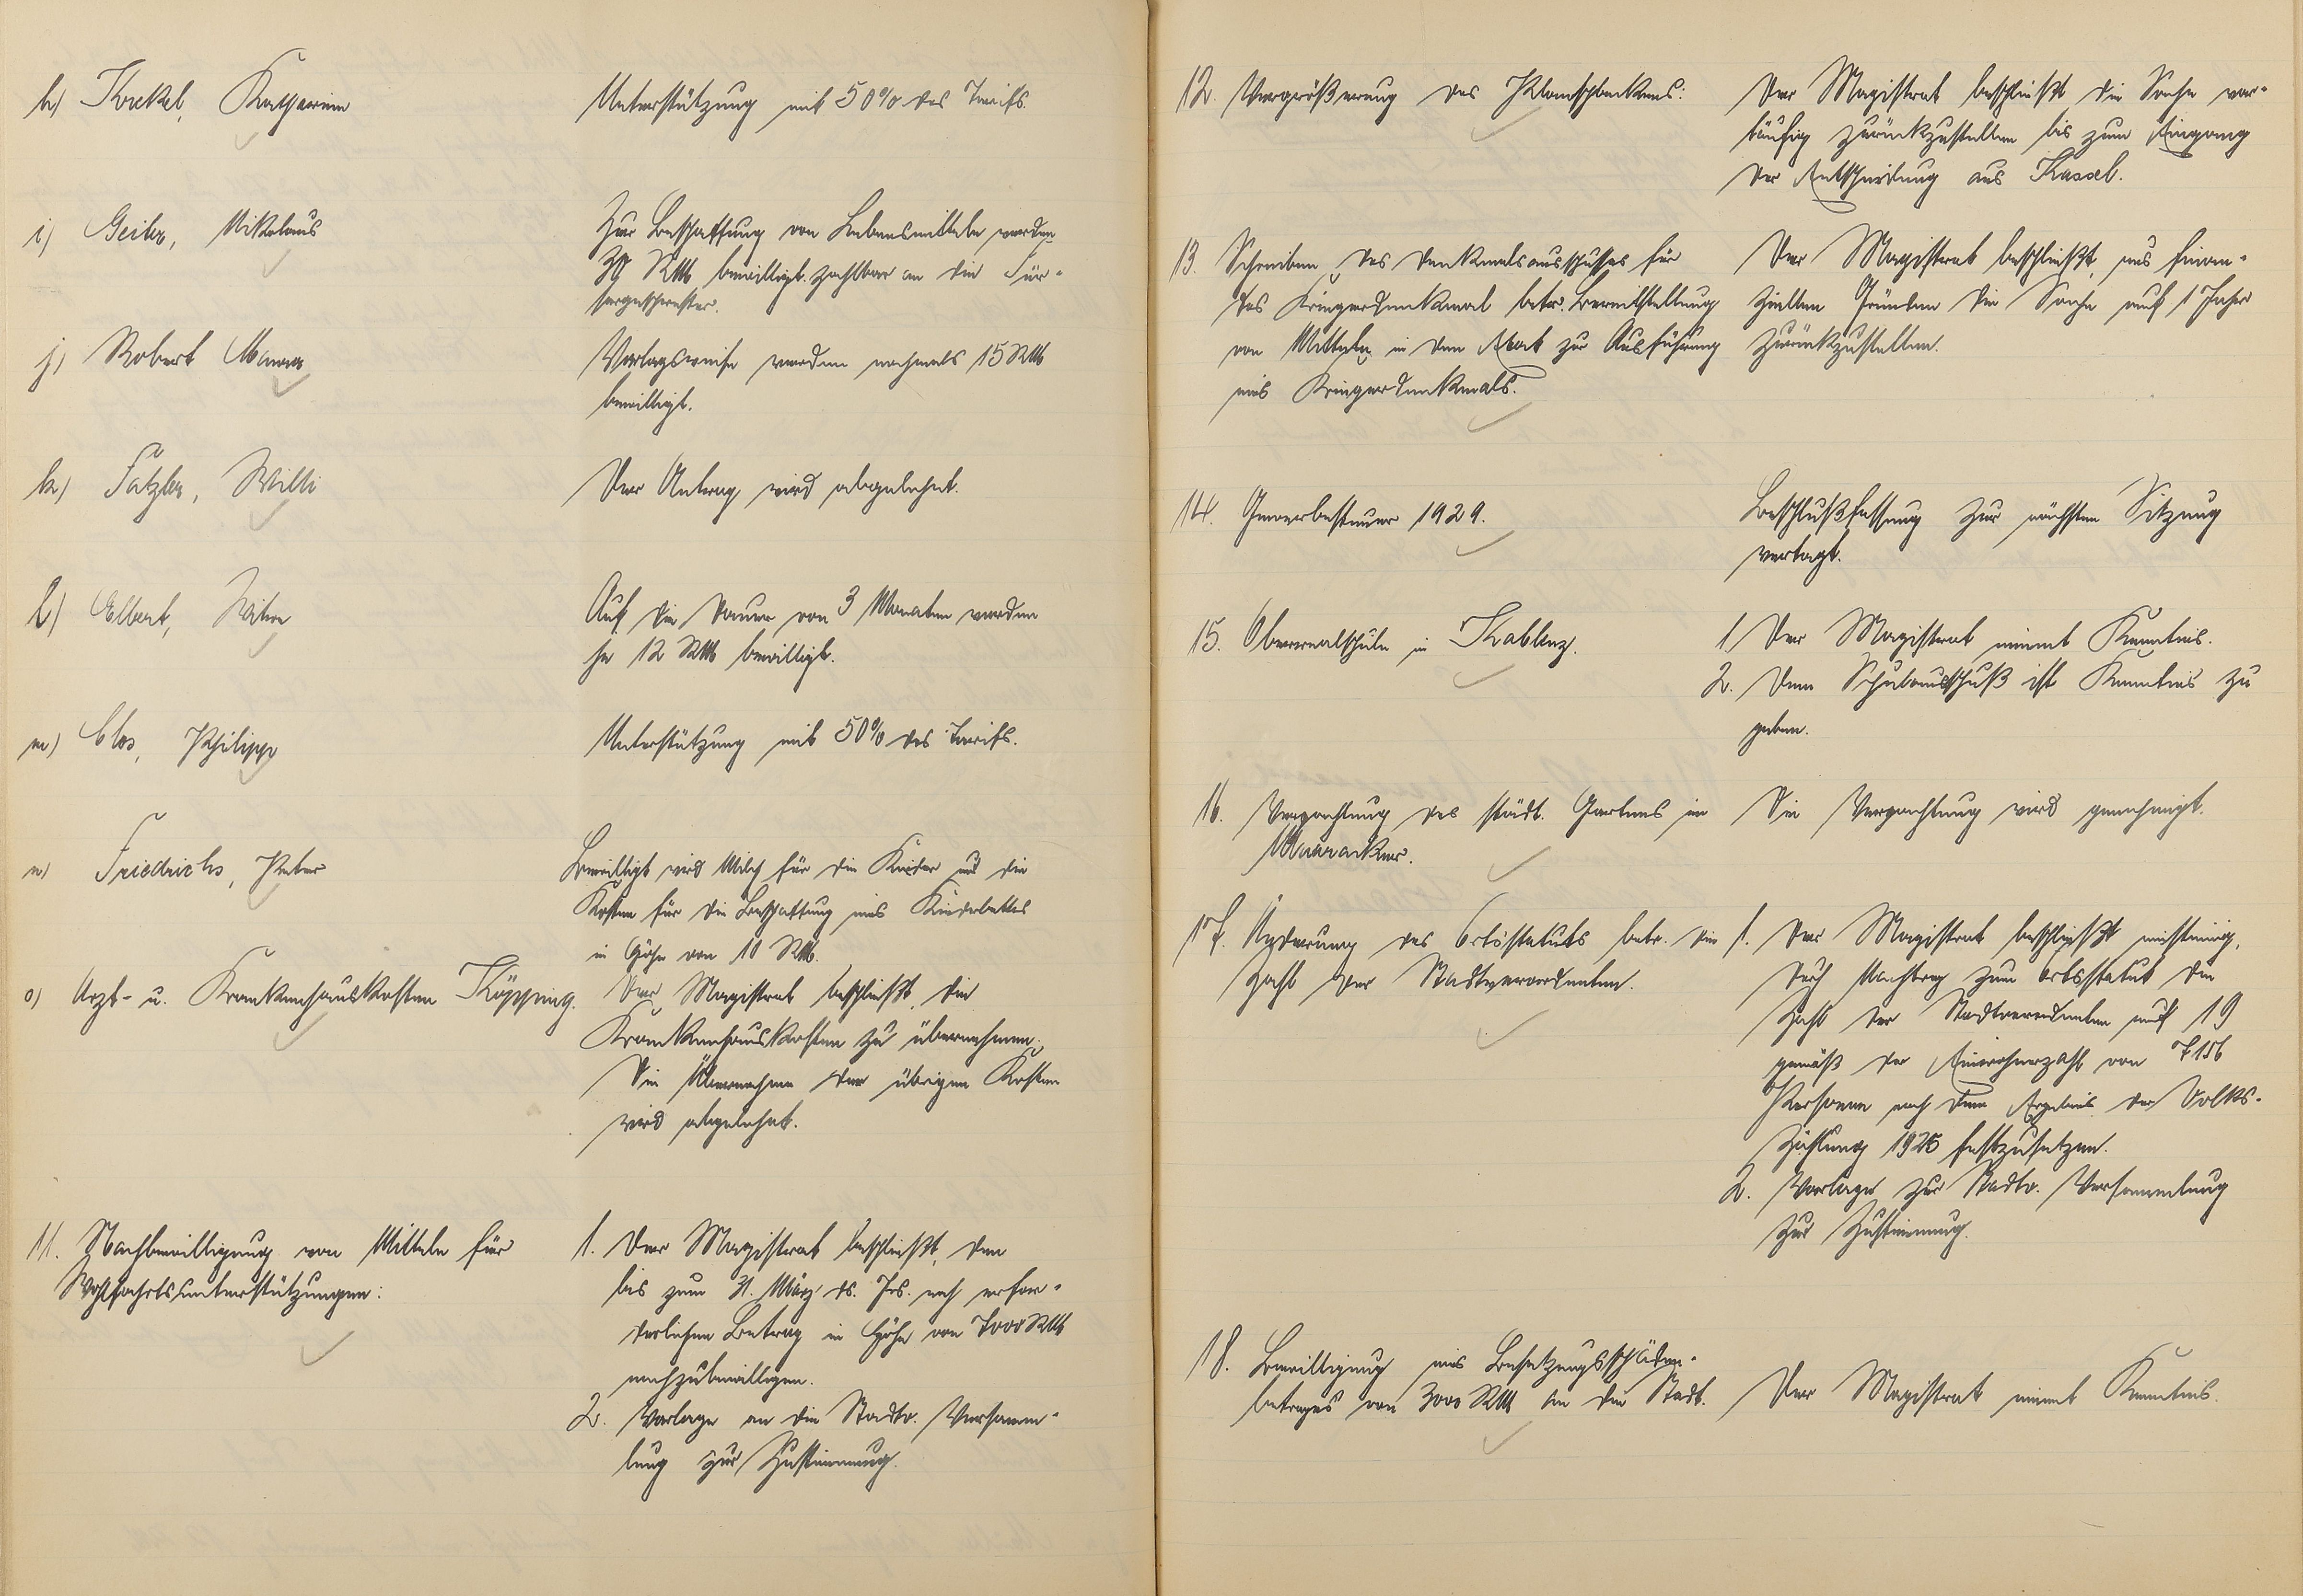 h) Krekel, Katharina
Unterstützung mit 50% des Tarifs.
i) Geiter, Nikolaus
Zur Beschaffung von Lebensmitteln werden
30 RM bewilligt. zahlbar an die Für-
sorgeschwester.
j) Robert Manns
Vorlagsweise werden nochmals 15 RM
bewilligt.
k) Fatzler, Willi
Der Antrag wird abgelehnt.
l) Elbert, Witwe
Auf die Dauer von 3 Monaten werden
je 12 RM bewilligt.
m) Clos, Philipp
Unterstützung mit 50% des Tarifs.
n) Friedrichs, Peter
Bewilligt wird Milch für die Kinder und die
Kosten für die Beschaffung eines Kinderbettes
in Höhe von 10 RM.
o) Arzt- u. Krankenhauskosten Köpping.
Der Magistrat beschließt, die
Krankenhauskosten zu übernehmen.
Die Übernahme der übrigen Kosten
wird abgelehnt.
11. Nachbewilligung von Mitteln für
Wohlfahrtsunterstützungen:
1. Der Magistrat beschließt, den
bis zum 31. März ds. Jrs. noch erfor-
derlichen Betrag in Höhe von 7000 RM
nachzubewilligen.
2. Vorlage an die Stadtv. Versamm-
lung zur Zustimmung.
12. Vergrößerung des Planschbeckens:
Der Magistrat beschließt die Sache vor-
läufig zurückzustellen bis zum Eingang
der Entscheidung aus Kassel.
13. Schreiben des Denkmalsausschusses für
das Kriegerdenkmal betr. Bereitstellung
von Mitteln in den Etat zur Ausführung
eines Kriegerdenkmals.
Der Magistrat beschließt, aus finan-
ziellen Gründen die Sache auf 1 Jahr
zurückzustellen.
14. Gewerbesteuer 1929.
Beschlußfassung zur nächsten Sitzung
vertagt.
15. Oberrealschule in Koblenz.
1. Der Magistrat nimmt Kenntnis.
2. Dem Schulausschuß ist Kenntnis zu
geben.
16. Verpachtung des städt. Gartens im
Maaracker.
Die Verpachtung wird genehmigt.
17. Änderung des Ortsstatuts betr. die
Zahl der Stadtverordneten.
1. Der Magistrat beschließt einstimmig,
durch Nachtrag zum Ortsstatut die
Zahl der Stadtverordneten auf 19
gemäß der Einwohnerzahl von 7156
Personen nach dem Ergebnis der Volks-
zählung 1925 festzusetzen.
2. Vorlage zur Stadtv. Versammlung
zur Zustimmung.
18. Bewilligung eines Besatzungsschäden-
betrages von 3000 RM an die Stadt.
Der Magistrat nimmt Kenntnis.